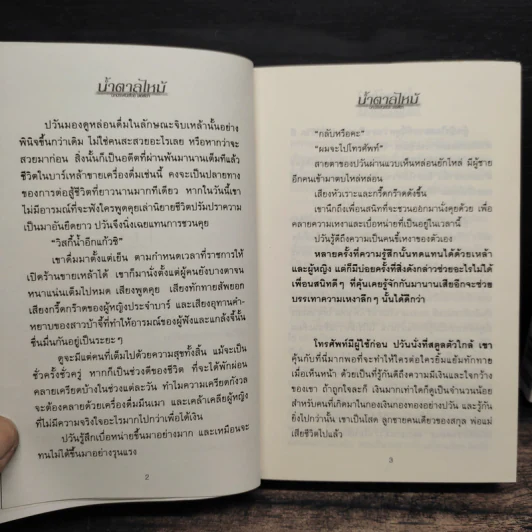 น้ำตาลไหม้
ปวันมองดูหล่อนดื่มในลักษณะจิบเหล้านั้นอย่าง
พินิจขึ้นกว่าเดิม ไม่ใช่คนสะสวยอะไรเลย หรือหากว่าจะ
สวยมาก่อน สิ่งนั้นก็เป็นอดีตที่ผ่านพ้นมานานเต็มทีแล้ว
ชีวิตในบาร์เหล้าขายเครื่องดื่มเช่นนี้ คงจะเป็นปลายทาง
ของการต่อสู้ชีวิตที่ยาวนานมากทีเดียว หากในวันนี้เขา
ไม่มีอารมณ์ที่จะฟังใครพูดคุยเล่านิยายชีวิตปรัมปราความ
เป็นมาอันยืดยาว ปวันจึงนั่งเฉยแทนการชวนคุย
"วิสกี้น้ำอีกแก้วซิ"
เขาดื่มมาตั้งแต่เย็น ตามกำหนดเวลาที่ราชการให้
เปิดร้านขายเหล้าได้ เขาก็มานั่งตั้งแต่ผู้คนยังบางตาจน
หนาแน่นเต็มไปหมด เสียงพูดคุย เสียงทักทายสัพยอก
เสียงกรี๊ดกร๊าดของผู้หญิงประจำบาร์ และเสียงอุทานคำ-
หยาบของสาวบ้าจี้ที่ทำให้อารมณ์ของผู้ฟังและแกล้งจี้นั้น
ชื่นมื่นกันอยู่เป็นระยะๆ
ดูจะมีแต่คนที่เต็มไปด้วยความสุขทั้งสิ้น แม้จะเป็น
ชั่วครั้งชั่วครู่ หากก็เป็นช่วงดีของชีวิต ที่จะได้พักผ่อน
คลายเครียดบ้างในช่วงแต่ละวัน ทำไมความเครียดกังวล
จะต้องคลายด้วยเครื่องดื่มมึนเมา และเคล้าเคลียผู้หญิง
ที่ไม่มีความจริงใจอะไรมากไปกว่าเพื่อได้เงิน
ปวันรู้สึกเบื่อหน่ายขึ้นมาอย่างมาก และเหมือนจะ
ทนไม่ได้ขึ้นมาอย่างรุนแรง
2
น้ำตาลไหม้
"กลับหรือคะ"
"ผมจะไปโทรศัพท์"
สายตาของปวันผ่านแวบเห็นหล่อนยักไหล่ มีผู้ชาย
อีกคนเข้ามาตบไหล่หล่อน
เสียงหัวเราะและกรี๊ดกร๊าดดังขึ้น
เขานึกถึงเพื่อนสนิทที่จะชวนออกมานั่งคุยด้วย เพื่อ
คลายความเหงาและเบื่อหน่ายที่เป็นอยู่ในเวลานี้
ปวันรู้ดีถึงความเป็นคนขี้เหงาของตัวเอง
หลายครั้งที่ความรู้สึกนั้นทดแทนได้ด้วยเหล้า
และผู้หญิง แต่ก็มีบ่อยครั้งที่สิ่งดังกล่าวช่วยอะไรไม่ได้
เพื่อนสนิทดีๆ ที่คุ้นเคยรู้จักกันมานานเสียอีกจะช่วย
บรรเทาความเหงาลึกๆ นั้นได้ดีกว่า
โทรศัพท์มีผู้ใช้ก่อน ปวันนั่งที่สตูลตัวใกล้ เขา
คุ้นกับที่นี่มากพอที่จะทำให้ใครต่อใครยิ้มแย้มทักทาย
เมื่อเห็นหน้า ด้วยเป็นที่รู้กันดีถึงความมีเงินและใจกว้าง
ของเขา ถ้าถูกใจละก็ เงินมากเท่าใดก็ดูเป็นจำนวนน้อย
สำหรับคนที่เกิดมาในกองเงินกองทองอย่างปวัน และรู้กัน
ยิ่งไปกว่านั้น เขาเป็นโสด ลูกชายคนเดียวของสกุล พ่อแม่
เสียชีวิตไปแล้ว
3